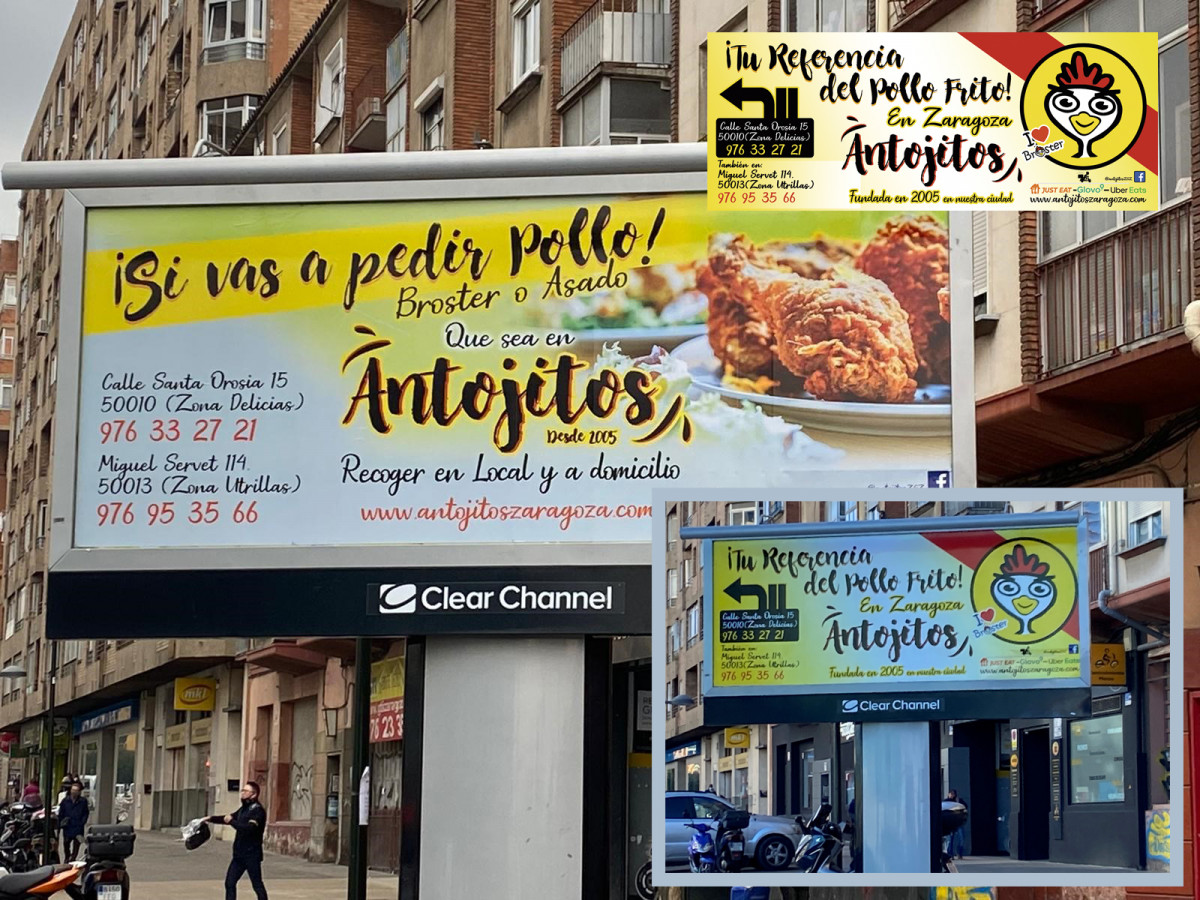 ¡Si vas a pedir Pollo!
Broster o Asado
Que sea en
Antojitos
Desde 2005
Calle Santa Orosia 15
50010 (Zona Delicias)
976 33 27 21
Miguel Servet 114.
50013 (Zona Utrillas)
976 95 35 66
Recoger en Local y a domicilio
www.antojitoszaragoza.com
Clear Channel
mkt
¡Tu Referencia
del Pollo Frito!
En Zaragoza
Antojitos
Calle Santa Orosia 15
50010 (Zona Delicias)
976 33 27 21
También en:
Miguel Servet 114.
50013 (Zona Utrillas)
976 95 35 66
I
Broster
Fundada en 2005 en nuestra ciudad
JUST EAT - Glovo - Uber Eats
www.antojitoszaragoza.com
¡Tu Referencia
del Pollo Frito!
En Zaragoza
Antojitos
Calle Santa Orosia 15
50010 (Zona Delicias)
976 33 27 21
También en:
Miguel Servet 114.
50013 (Zona Utrillas)
976 95 35 66
I
Broster
Fundada en 2005 en nuestra ciudad
JUST EAT - Glovo - Uber Eats
www.antojitoszaragoza.com
Clear Channel